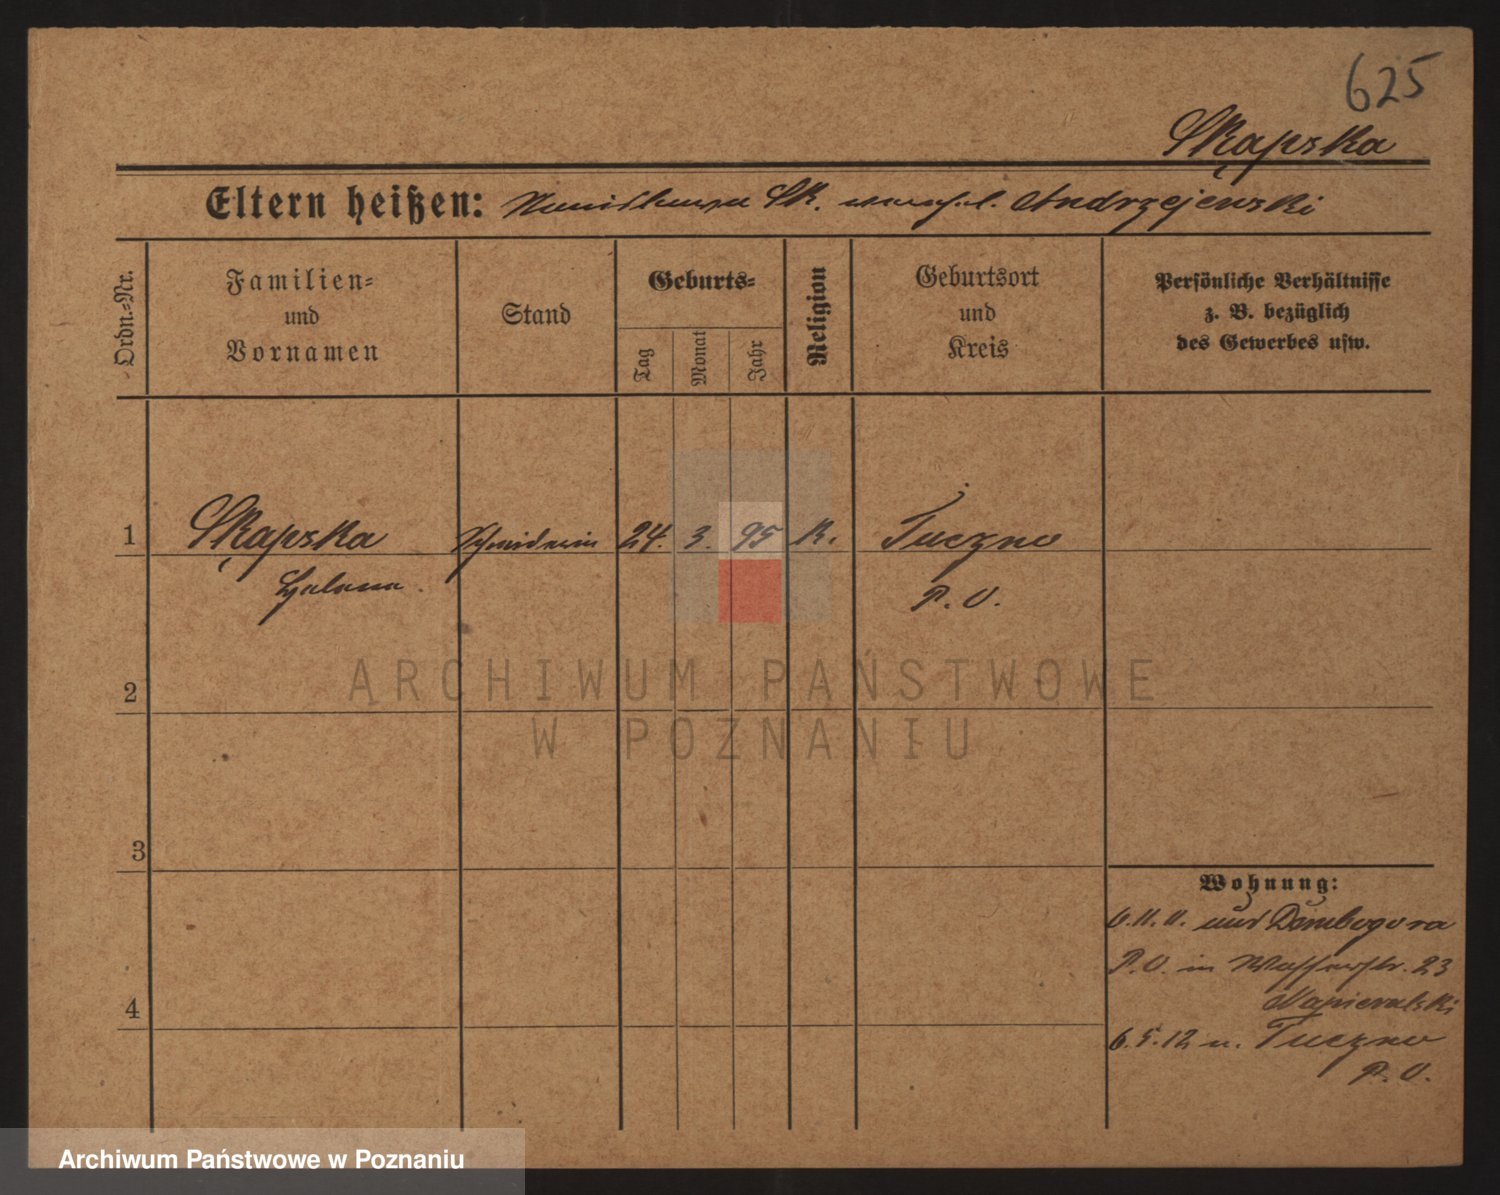 625
Skąpska
Eltern heißen: Sk. Andrzejewski
Ordn.-Nr.
Familien- und Vornamen
Stand
Geburts-
Tag
Monat
Jahr
Religion
Geburtsort und Kreis
Persönliche Verhältnisse
z. B. bezüglich
des Gewerbes usw.
1 Skąpska Schneiderin 24. 3. 95 K. Tuczno
P. O.
2
3
4
Wohnung:
Dombogora
P. O. in Wasserstr. 23
Napieralski
6.5.12 n. Tuczno
P. O.
ARCHIWUM PAŃSTWOWE
W POZNANIU
Archiwum Państwowe w Poznaniu